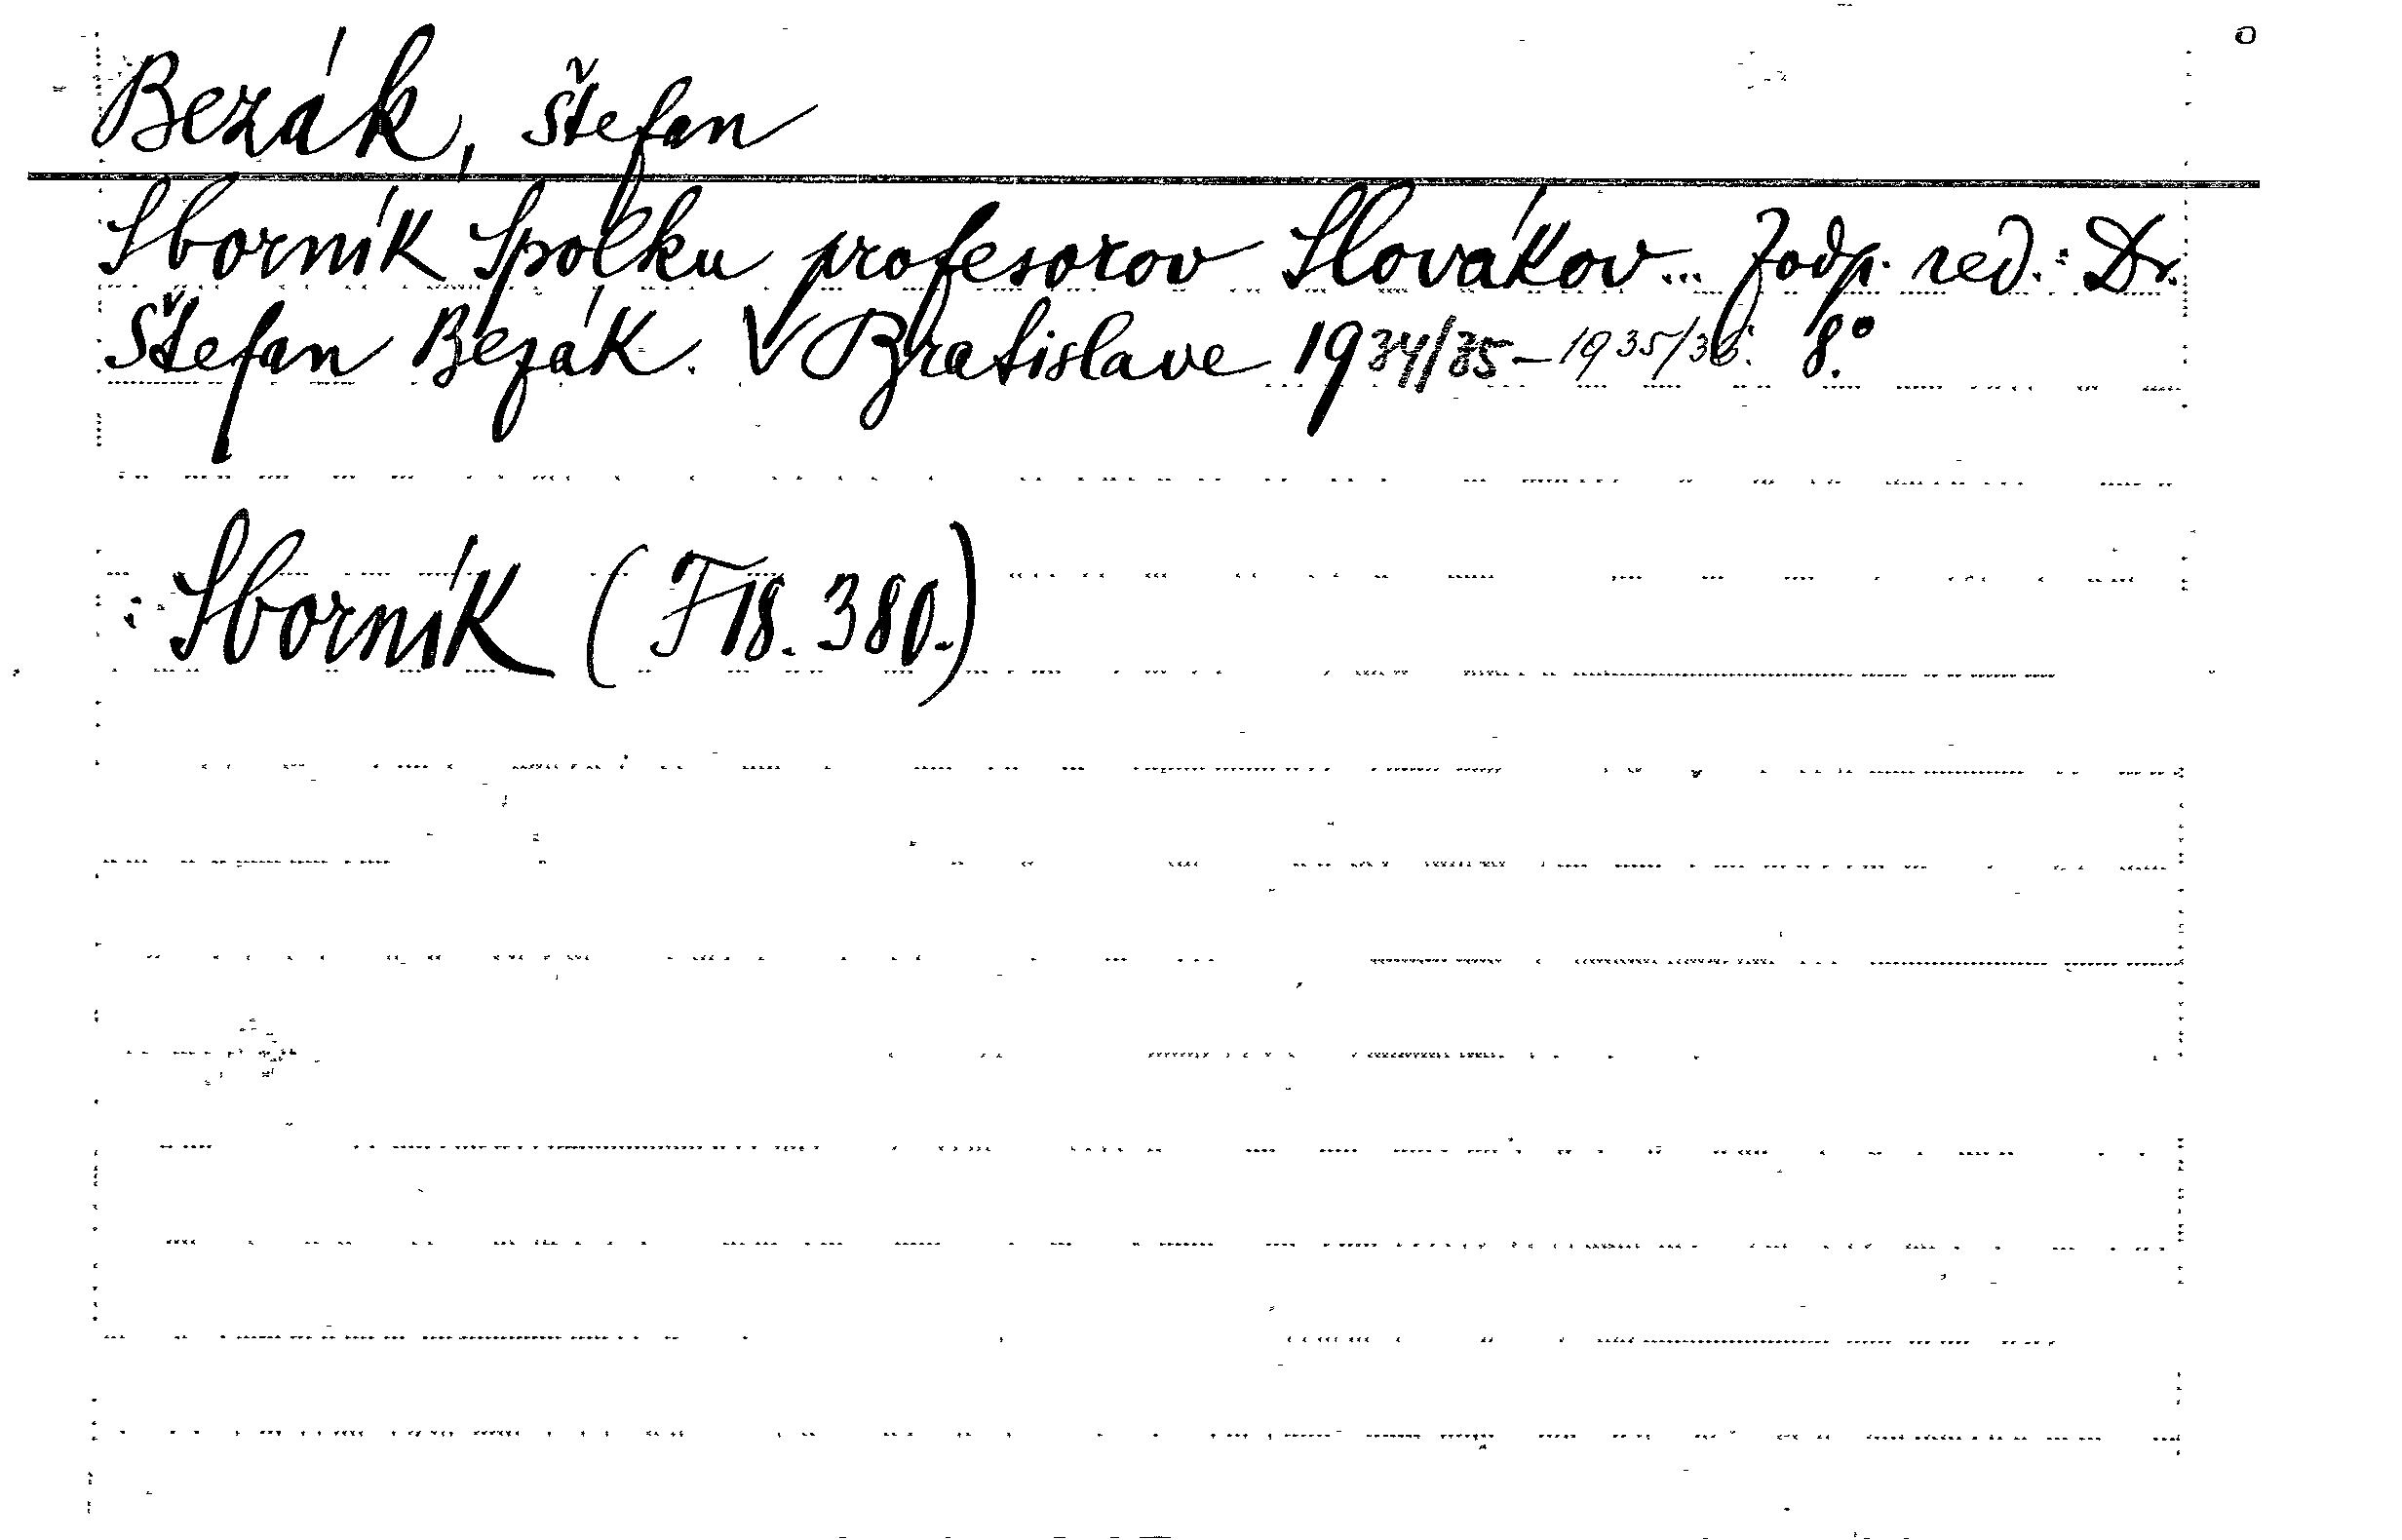 Bezák, Štefan
Sborník Spolku profesorov Slovákov... Zodp. red.: Dr.
Štefan Bezák. V Bratislave 1934/35–1935/36. 8°.
: Sborník (F 18.380.)